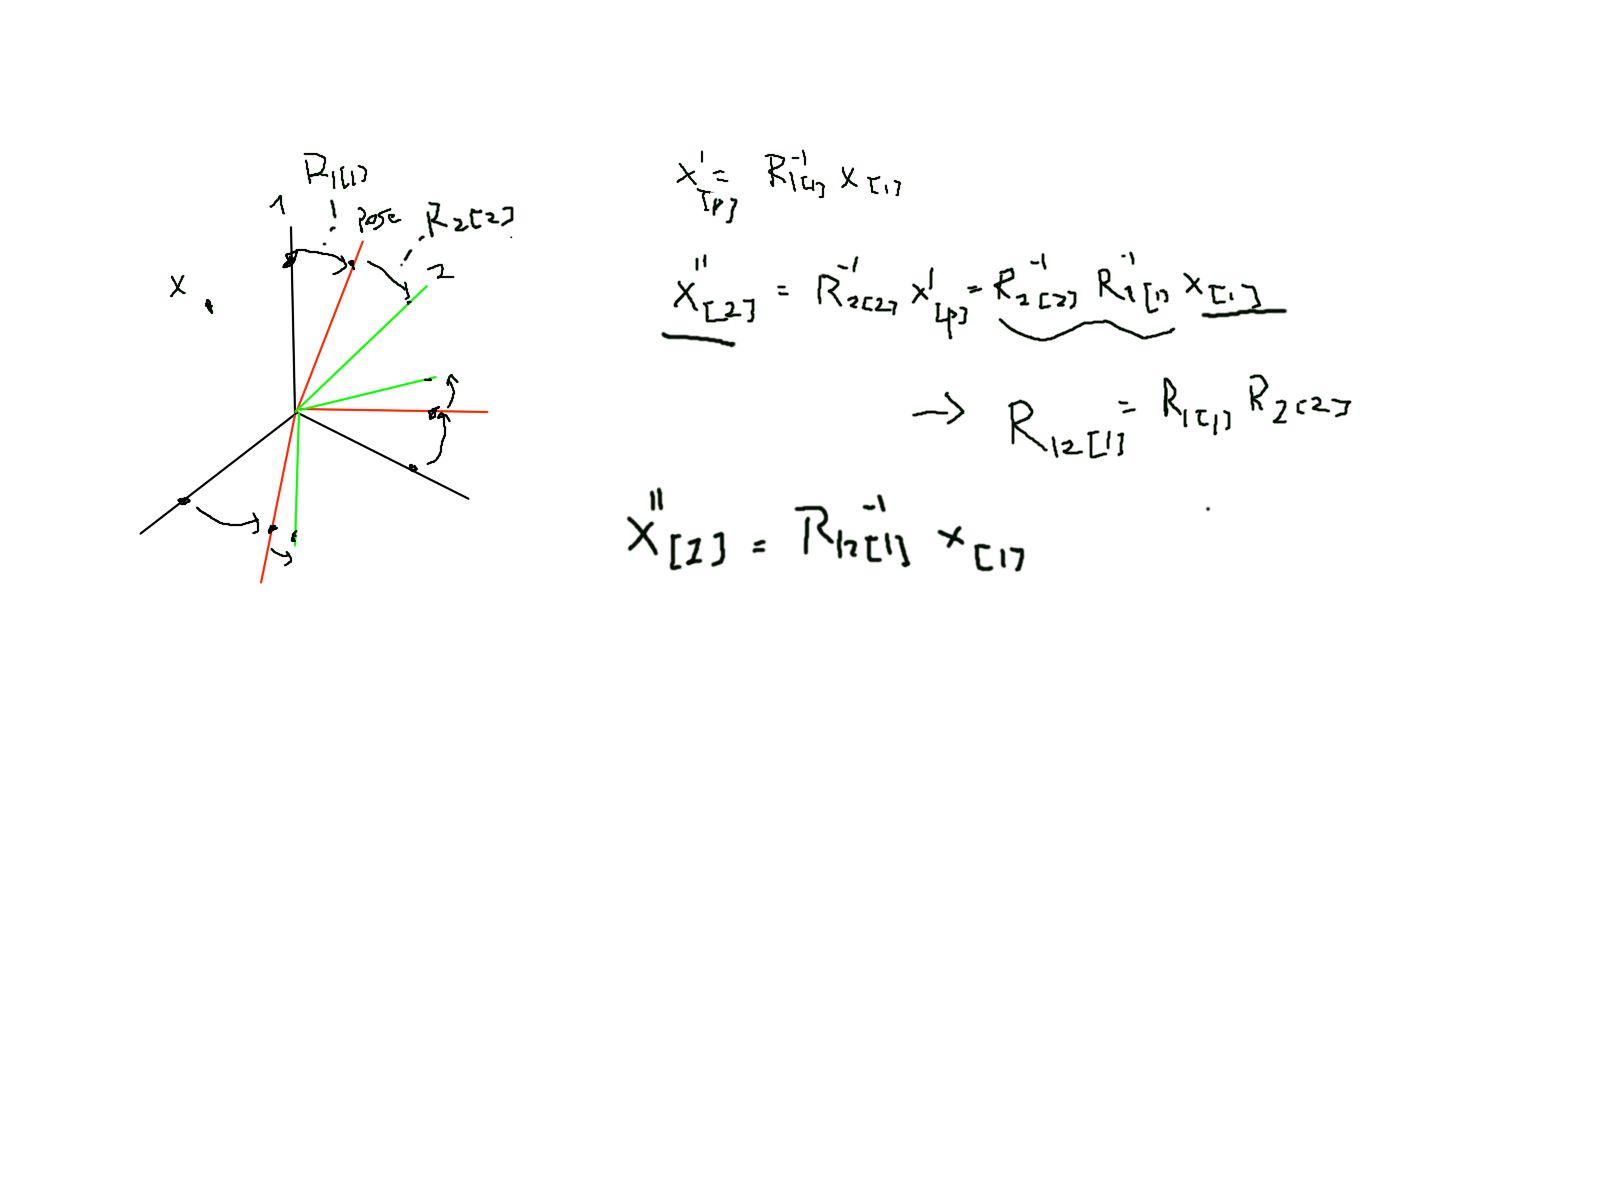 R1[1]
1
pose
R2[2]
2
x
x'[p] = R⁻¹1[1] x[1]
x''[2] = R⁻¹2[2] x'[p] = R⁻¹2[2] R⁻¹1[1] x[1]
→ R12[1] = R1[1] R2[2]
x''[2] = R⁻¹12[1] x[1]